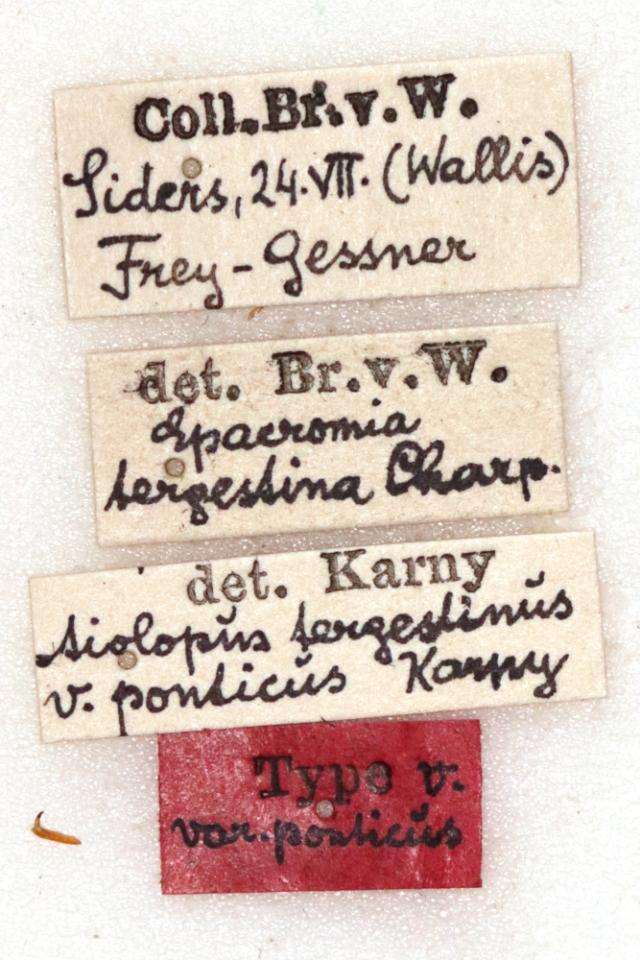 Coll.Br.v.W.
Siders, 24.VII. (Wallis)
Frey-Gessner
det. Br.v.W.
Epacromia
tergestina Charp.
det. Karny
Aiolopus tergestinus
v. ponticus Karny
Type v.
var. ponticus